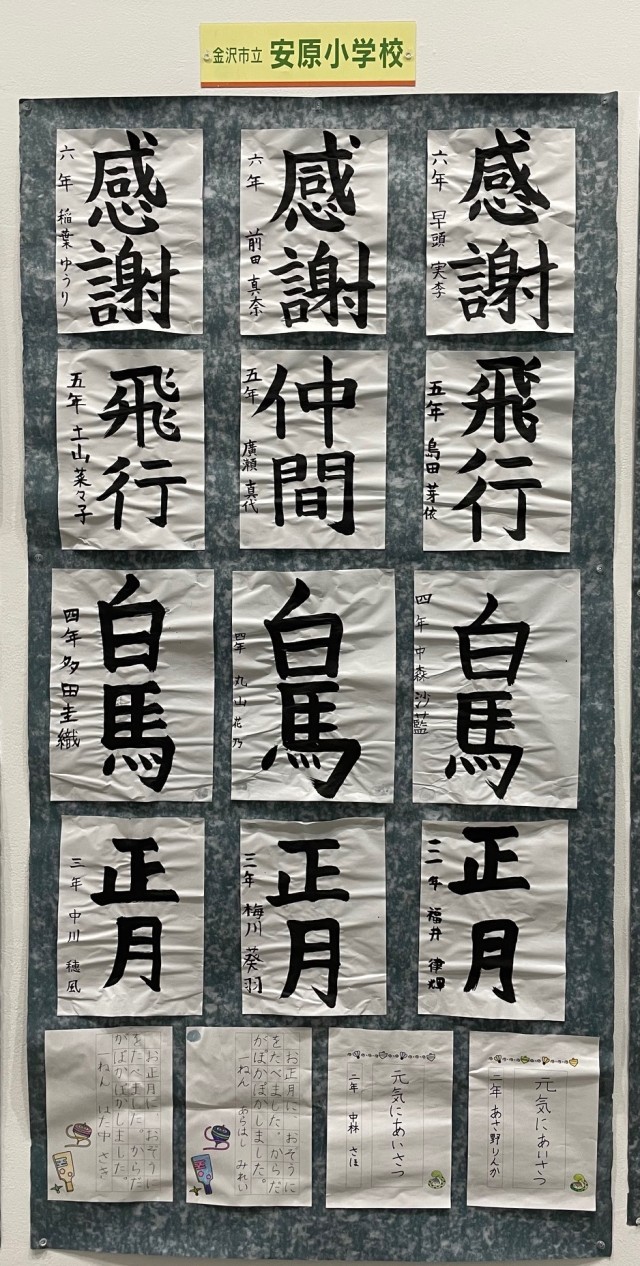 金沢市立 安原小学校
感謝
六年 早頭 実李
感謝
六年 前田 真奈
感謝
六年 稲葉 ゆうり
飛行
五年 島田 芽依
仲間
五年 廣瀬 真代
飛行
五年 土山 菜々子
白馬
四年 中森 沙藍
白馬
四年 丸山 花乃
白馬
四年 多田 圭織
正月
三年 福井 律輝
正月
三年 梅川 葵羽
正月
三年 中川 穂風
元気にあいさつ
二年 あさ野りんか
元気にあいさつ
二年 中林 さほ
お正月に、おぞうに
をたべました。からだ
がぽかぽかしました。
一ねん あらはし みれい
お正月に、おぞうに
をたべました。からだ
がぽかぽかしました。
一ねん はた中 さき